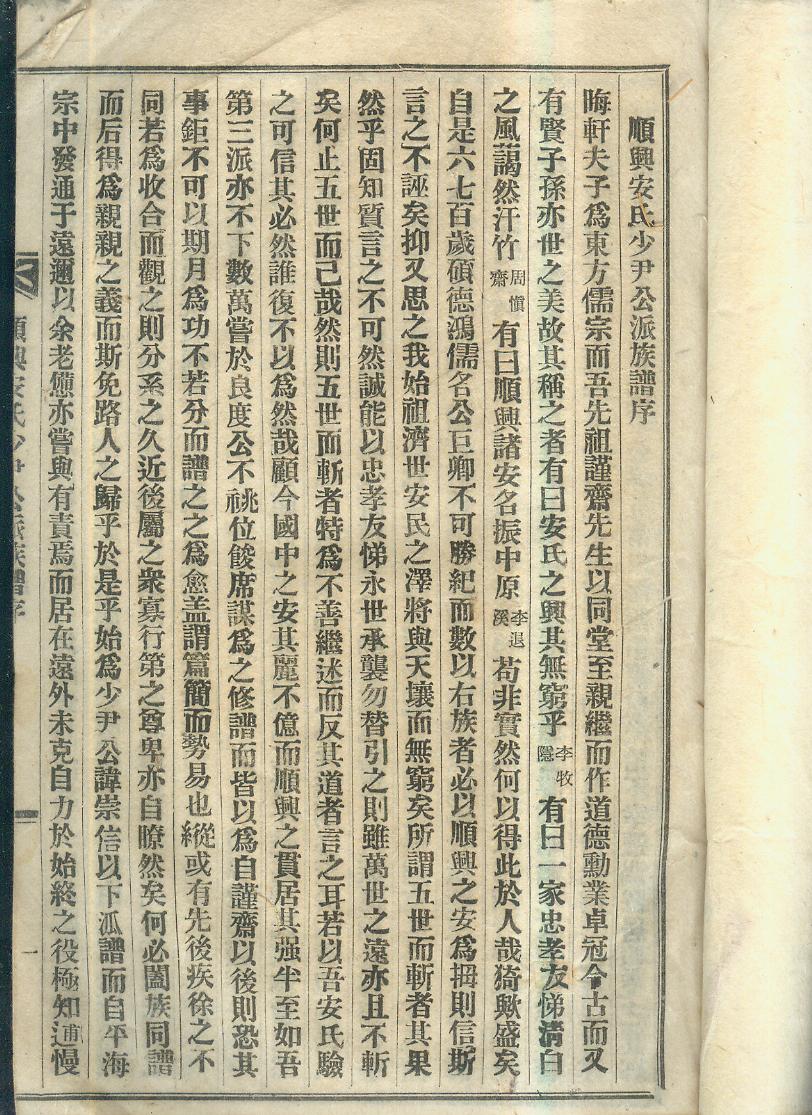 順興安氏少尹公派族譜序
晦軒夫子爲東方儒宗而吾先祖謹齋先生以同堂至親繼而作道德勳業卓冠今古而又
有賢子孫亦世之美故其稱之者有曰安氏之興其無窮乎李牧隱有曰一家忠孝友悌淸白
之風藹然汗竹周愼齋有曰順興諸安名振中原李退溪苟非實然何以得此於人哉猗歟盛矣
自是六七百歲碩德鴻儒名公巨卿不可勝紀而數以右族者必以順興之安爲拇則信斯
言之不誣矣抑又思之我始祖濟世安民之澤將與天壤而無窮矣所謂五世而斬者其果
然乎固知質言之不可然誠能以忠孝友悌永世承襲勿替引之則雖萬世之遠亦且不斬
矣何止五世而已哉然則五世而斬者特爲不善繼述而反其道者言之耳若以吾安氏驗
之可信其必然誰復不以爲然哉顧今國中之安其麗不億而順興之貫居其强半至如吾
第三派亦不下數萬嘗於良度公不祧位餕席謀爲之修譜而皆以爲自謹齋以後則恐其
事鉅不可以期月爲功不若分而譜之之爲愈盖謂篇簡而勢易也縱或有先後疾徐之不
同若爲收合而觀之則分系之久近後屬之衆寡行第之尊卑亦自瞭然矣何必闔族同譜
而后得爲親親之義而斯免路人之歸乎於是乎始爲少尹公諱崇信以下派譜而自平海
宗中發通于遠邇以余老憊亦嘗與有責焉而居在遠外未克自力於始終之役極知逋慢
順興安氏少尹公派族譜序
一